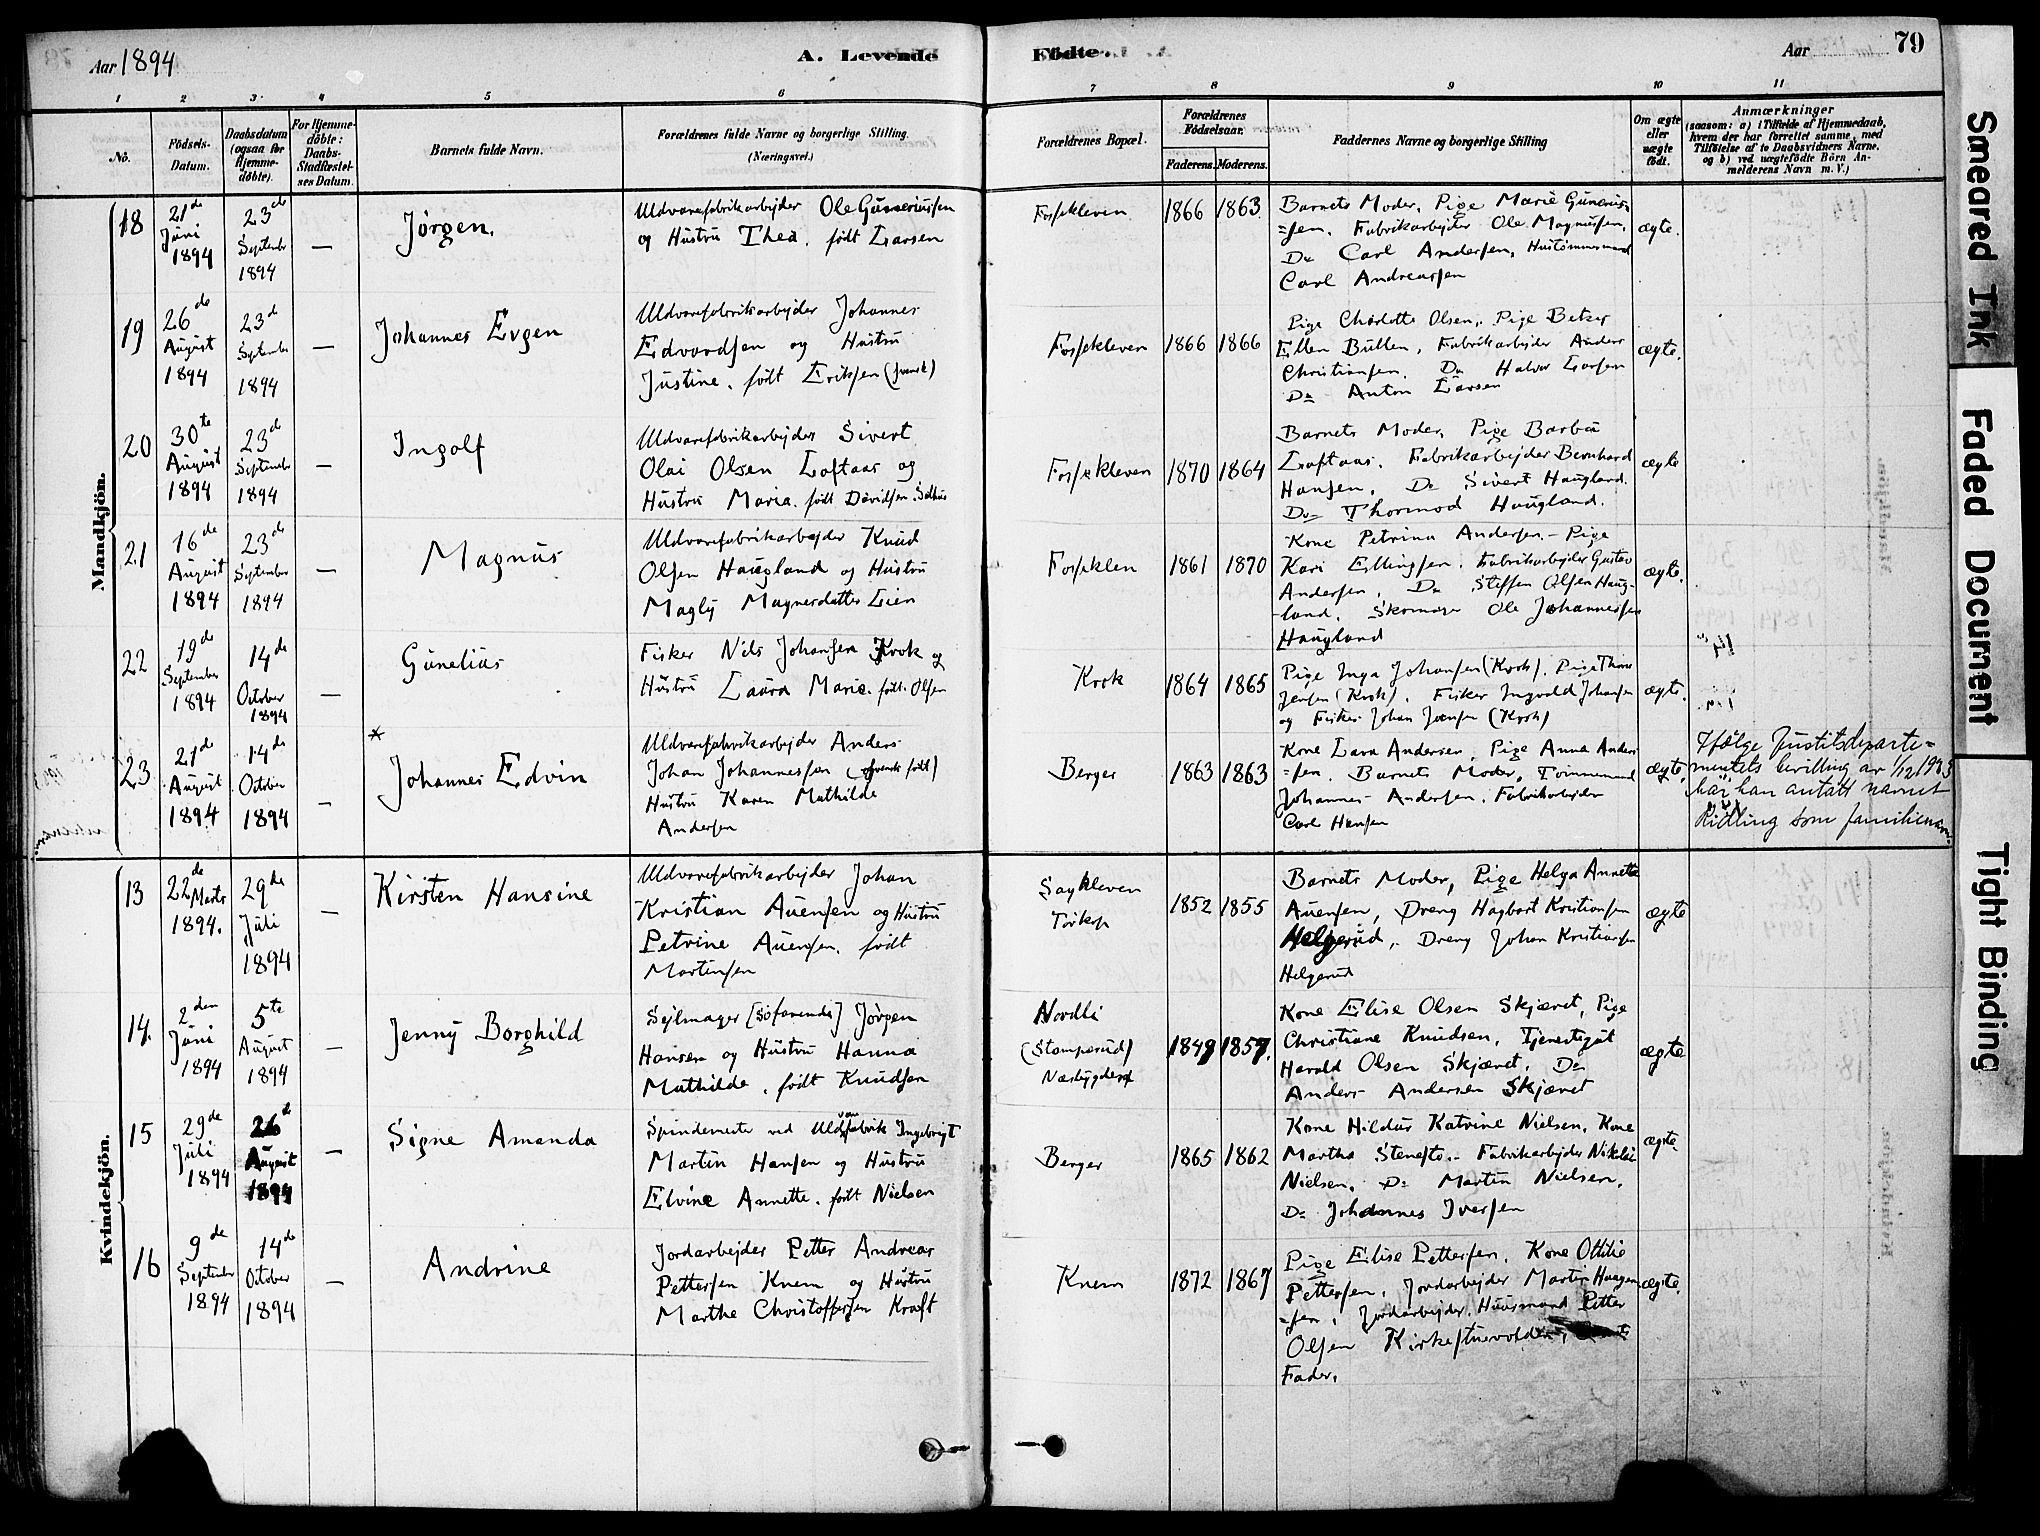 Aar 1894
A. Levende Födte.
Aar 79
1 2 3 4 5 6 7 8 9 10 11
No.
Födsels-Datum.
Daabsdatum (ogsaa for Hjemme-döbte).
For Hjemme-döbte: Daabs-Stadfæstel-ses Datum.
Barnets fulde Navn.
Forældrenes fulde Navne og borgerlige Stilling. (Næringsvei.)
Forældrenes Bopæl.
Forældrenes Födselsaar.
Faderens. Moderens.
Faddernes Navne og borgerlige Stilling
Om ægte eller uægte født.
Anmærkninger
(saasom: a) i Tilfælde af Hjemmedaab, hvem der har forrettet samme, med Tilføielse af to Daabsvidners Navne, og b) ved uægtefödte Börn An-melderens Navn m. V.)
Mandkjön.
18
21de Juni 1894
23de September 1894
—
Jörgen.
Uldvarefabrikarbejder Ole Gunneriussen
og Hustru Thea. født Larsen
Fossekleven
1866 1863
Barnets Moder, Pige Marie Gunerius=
=sen. Fabrikarbejder Ole Magnussen,
Do Carl Andersen, Hustømmermand
Carl Andreassen
ægte.
19
26de August 1894
23d September 1894
—
Johannes Evgen
Uldvarefabriksarbejder Johannes
Edvardsen og Hustru
Justine. født Eriksen (svensk)
Fossekleven
1866 1866
Pige Charlotte Olsen, Pige Betzy
Ellen Bullen, Fabrikarbejder Anders
Christiansen. Do Halvor Larsen
Do Anton Larsen
ægte.
20
30te August 1894
23d September 1894
—
Ingolf
Uldvarefabrikarbejder Sivert
Olai Olsen Loftaas og
Hustru Maria. født Davidsen
Fossekleven
1870 1864
Barnets Moder, Pige Barbra
Loftaas. Fabrikarbejder Bernhard
Hansen, Do Sivert Haugland.
Do Thormod Haugland.
ægte
21
16de August 1894
23de September 1894
—
Magnus
Uldvarefabrikarbejder Knud
Olsen Haugland og Hustru
Magly Magnesdatter Lien
Fosseklen
1861 1870
Kone Petrina Andersen - Pige
Kari Ellingsen. Fabrikarbejder Gustav
Andersen, Do Steffen Olsen Haug-
-land. Skomager Ole Johannessen
Haugland
ægte.
22
19de September 1894
14de October 1894
—
Gunelius
Fisker Nils Johansen Krok og
Hustru Laura Marie. født. Olsen
Krok
1864 1865
Pige Inga Johansen (Krok). Pige Thina
Jensen (Krok). Fisker Ingvald Johansen
og Fisker Johan Jensen (Krok)
ægte.
23
21de August 1894
14de October 1894
—
* Johannes Edvin
Uldvarefabrikarbejder Anders
Johan Johannessen (svensk født)
Hustru Karen Mathilde
Andersen
Berger
1863 1863
Kone Lara Andersen, Pige Anna Anders
=sen. Barnets Moder, Tømmermand
Johannes Andersen. Fabrikarbejder
Carl Hansen
ægte.
Ifølge Justitsdeparte=
mentets bevilling av 1/12 1923
har han antatt navnet
Ridling som familienavn.
Kvindekjön.
13
22de Marts 1894.
29de Juli 1894
—
Kirsten Hansine
Uldvarefabrikarbejder Johan
Kristian Auensen og Hustru
Petrine Auensen. født
Martinsen
Sagkleven
1852 1855
Barnets Moder, Pige Helga Annette
Auensen, Dreng Hagbart Kristiansen
Helgerud, Dreng Johan Kristiansen
Helgerud
ægte
14.
2den Juni 1894
5te August 1894
—
Jenny Borghild
Sejlmager (Søfarende) Jørgen
Hansen og Hustru Hanna
Mathilde. født Knudsen
Nordli
(Stamperud)
Nesbygden
1849 1857.
Kone Elise Olsen Skjæret, Pige
Christiane Knudsen, Tjenestegut
Harald Olsen Skjæret. Do
Anders Andersen Skjæret
ægte
15
29de Juli 1894
26de August 1894
—
Signe Amanda
Spindemester ved Uldvarefabrik Ingebrigt
Martin Hansen og Hustru
Elvine Annette. født Nielsen
Berger
1865 1862
Kone Hildur Katrine Nielsen, Kone
Martha Stensto. Fabrikarbejder Nikolai
Nielsen, Do Martin Nielsen,
Do Johannes Iversen
ægte.
16
9de September 1894
14de October 1894
—
Andrine
Jordarbejder Petter Andreas
Pettersen Knem og Hustru
Marthe Christoffersen Kraft
Knem
1872 1867
Pige Elise Pettersen. Kone Ottilie
Pettersen, Jordarbejder Martin Haagen
=sen, Jordarbejder. Huusmand Petter
Olsen Kirkestuevolden, Barnets
Fader.
ægte.
Smeared Ink
Faded Document
Tight Binding